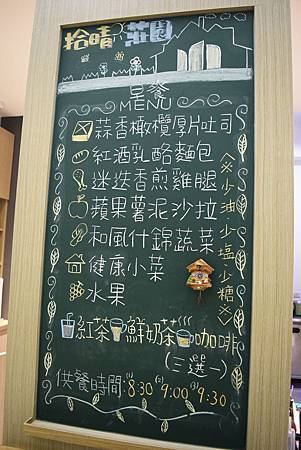 拾晴 莊園
早餐
MENU
蒜香橄欖厚片吐司
紅酒乳酪麵包
迷迭香煎雞腿
蘋果薯泥沙拉
和風什錦蔬菜
健康小菜
水果
※少油少塩少糖※
紅茶 鮮奶茶 咖啡
(三選一)
供餐時間:(1)8:30 (2)9:00 (3)9:30